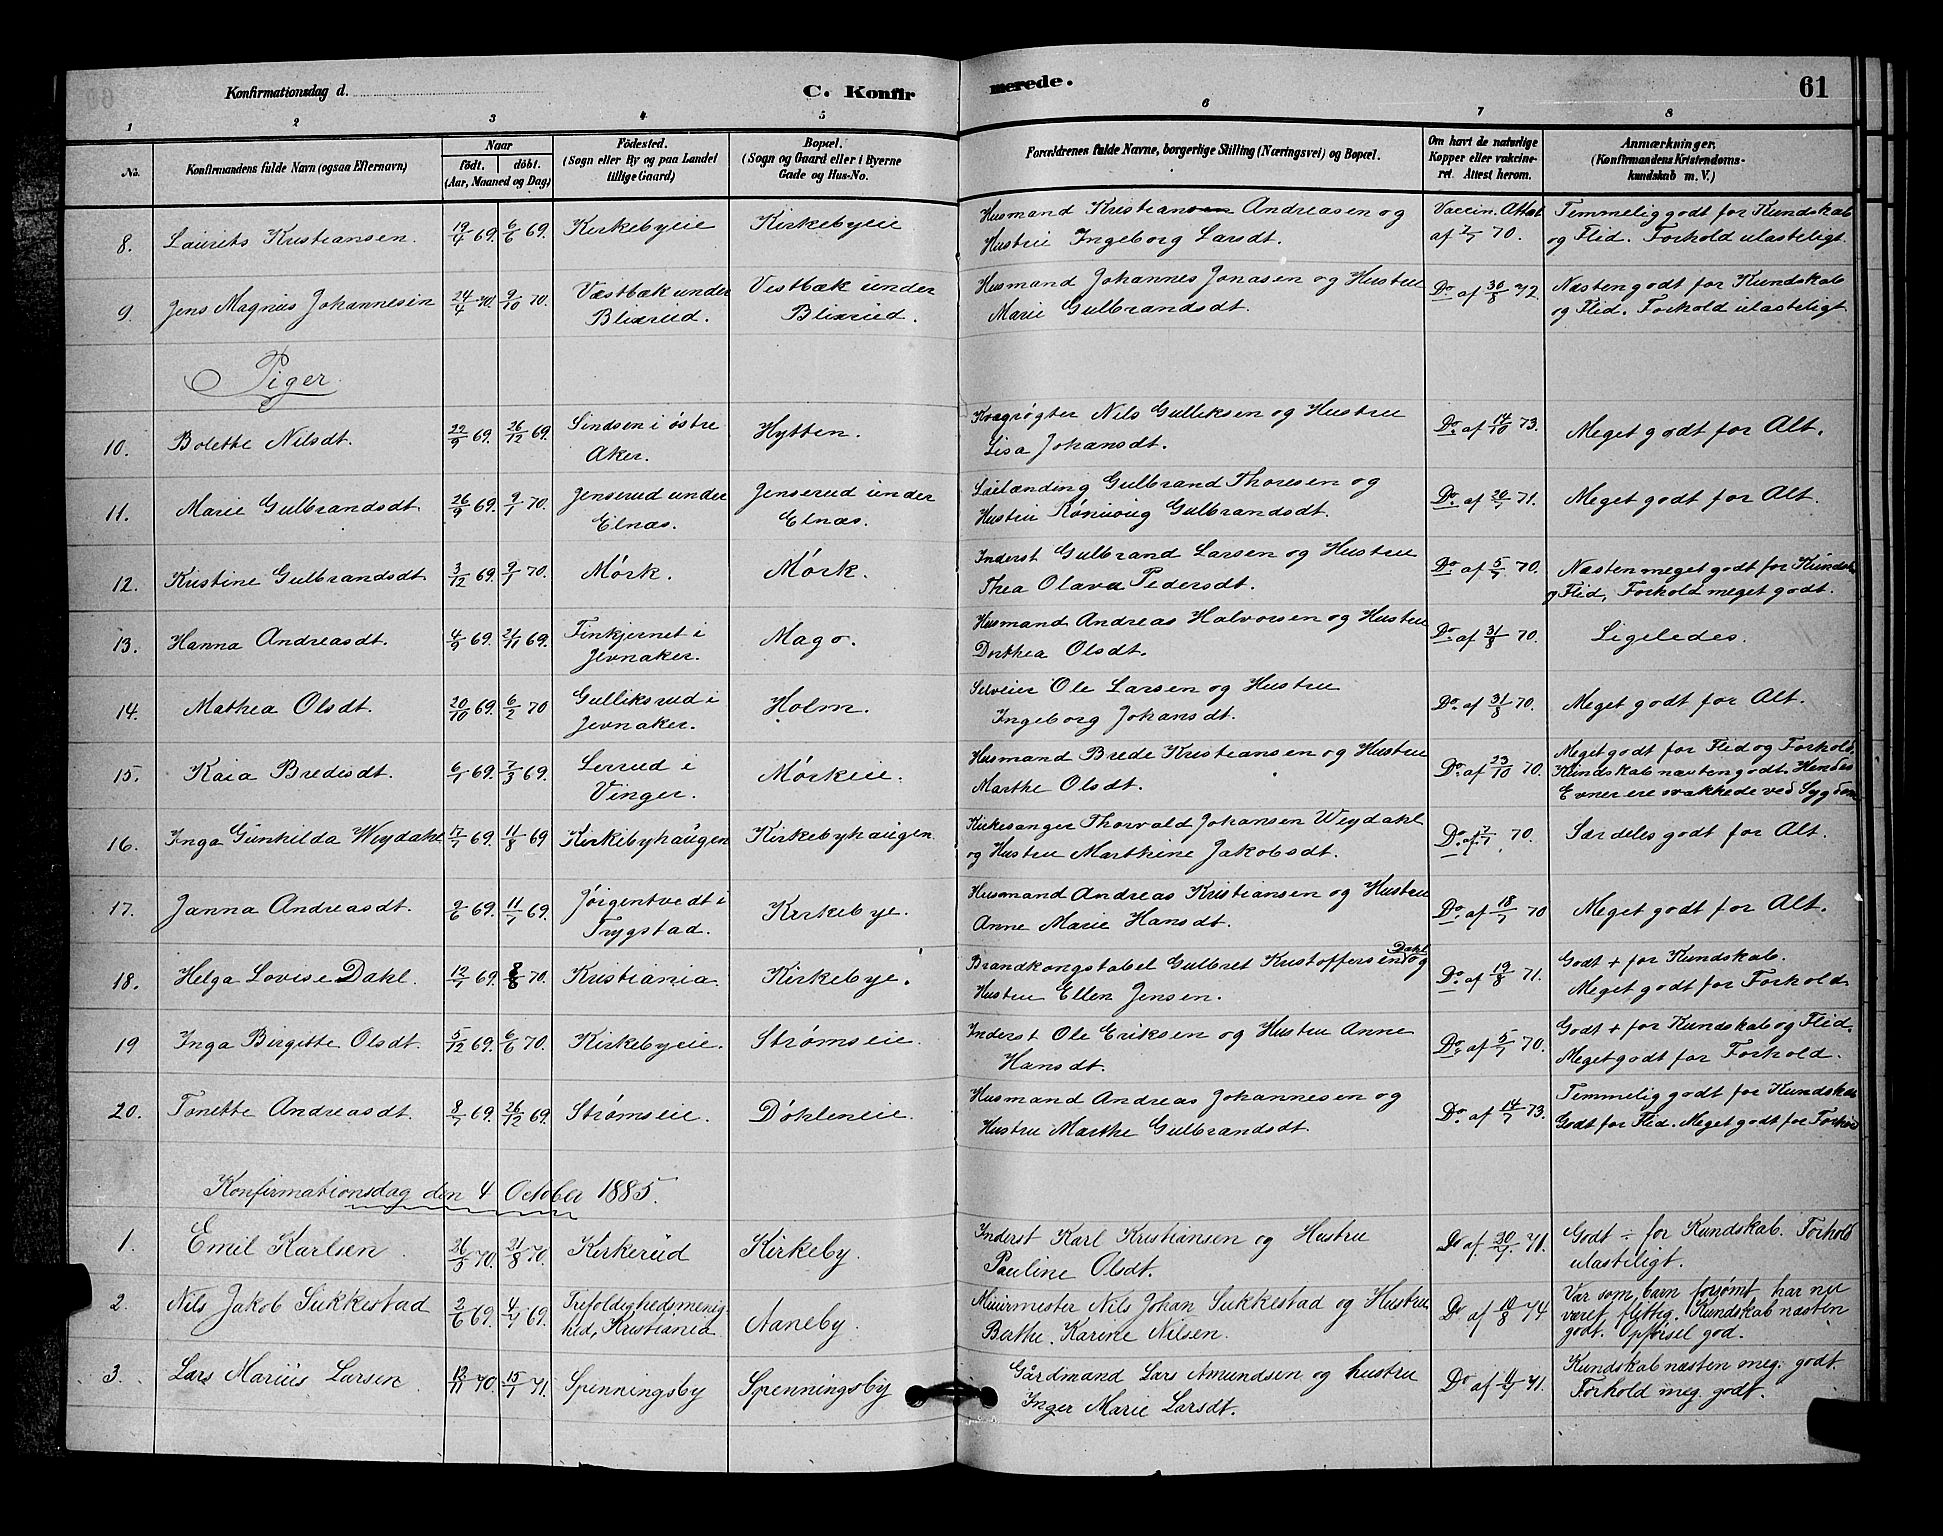 Konfirmationsdag d.
C. Konfir merede.
61
1 2 3 4 5 6 7 8
No.
Konfirmandens fulde Navn (ogsaa Efternavn)
Naar
födt. döbt.
(Aar, Maaned og Dag)
Födested.
(Sogn eller By og paa Landet
tillige Gaard)
Bopæl.
(Sogn og Gaard eller i Byerne
Gade og Hus-No.
Forældrenes fulde Navne, borgerlige Stilling (Næringsvei) og Bopæl.
Om havt de naturlige
Kopper eller vakcine-
ret. Attest herom.
Anmærkninger.
(Konfirmandens Kristendoms-
kundskab m. V.)
8. Laurits Kristiansen. 19/4 69. 6/6 69. Kirkebyeie Kirkebyeie
Husmand Kristian Andreasen og
Hustru Ingeborg Larsdt.
Vaccin. Attest
af 7/7 70.
Temmelig godt for Kundskab
og Flid. Forhold ulasteligt
9. Jens Magnus Johannesen 24/4 70. 9/10 70.
Væstbæk under
Blixrud.
Vestbæk under
Blixrud.
Husmand Johannes Jonasen og Hustru
Marie Gulbrandsdt.
Do af 30/8 72
Næsten godt for Kundskab
og Flid. Forhold ulasteligt
Piger
10. Bolethe Nilsdt. 22/9 69. 26/12 69.
Sindsen i østre
Aker.
Hytten.
Kvægrøgter Nils Gulliksen og Hustru
Lisa Johansdt.
Do. af 14/10 73.
Meget godt for Alt.
11. Marie Gulbrandsdt. 26/9 69. 9/1 70.
Jenserud under
Elnæs.
Jenserud under
Elnæs.
Leilænding Gulbrand Thoresen og
Hustru Rønnoug Gulbrandsdt.
Do af 20/7 71.
Meget godt for Alt.
12. Kristine Gulbrandsdt 3/12 69. 9/1 70. Mórk. Mórk.
Inderst Gulbrand Larsen og Hustru
Thea Olava Pedersdt.
Do af 5/7 70.
Næsten meget godt for Kundsk
og Flid, Forhold meget godt.
13. Hanna Andreasdt. 4/9 69. 21/11 69.
Finkjernet i
Jevnaker.
Mago.
Husmand Andreas Halvorsen og Hustru
Dorthea Olsdt.
Do af 31/8 70.
Ligeledes.
14. Mathea Olsdt. 20/10 69. 6/2 70
Gulliksrud i
Jevnaker.
Holm.
Selveier Ole Larsen og Hustru
Ingeborg Johansdt.
Do. af 31/8 70.
Meget godt for Alt.
15. Kaia Bredesdt. 6/1 69. 7/3 69.
Lerrud i
Vinger.
Mórkeie.
Husmand Brede Kristiansen og Hustru
Marthe Olsdt.
Do. af 23/10 70.
Meget godt for Flid og Forhold.
Kundskab næsten godt. Hendes
Evner ere svækkede ved Sygdom
16. Inga Gunhilda Weydahl 17/7 69. 11/8 69 Kirkebyhaugen Kirkebyhaugen.
Kirkesanger Thorvald Johansen Weydahl
og Hustru Marthine Jakobsdt.
Do. af 7/7 70.
Særdeles godt for Alt.
17. Janna Andreasdt. 2/6 69. 11/7 69.
Jórgentvedt i
Trygstad.
Kirkebye.
Husmand Andreas Kristiansen og Hustru
Anne Marie Hansdt.
Do. af 18/7 70
Meget godt for Alt.
18. Helga Lovise Dahl. 12/7 69. 70. Kristiania Kirkebye.
Brandkongstabel Gulbret Kristoffersen Dahl og
Hustru Ellen Jensen.
Do. af 19/8 71.
Godt + for Kundskab.
Meget godt for Forhold
19 Inga Birgitte Olsdt. 5/12 69. 6/6 70. Kirkebyeie. Strømseie.
Inderst Ole Eriksen og Hustru Anne
Hansdt.
Do. af 5/7 70.
Godt + for Kundskab og Flid.
Meget godt for Forhold.
20. Tonette Andreasdt. 8/7 69. 26/12 69. Strømseie. Dóhleneie.
Husmand Andreas Johannesen og
Hustru Marthe Gulbrandsdt.
Do. af 14/7 73.
Temmelig godt for Kundskab
Godt for Flid. Meget godt for Forhold
Konfirmationsdag den 4 October 1885.
1. Emil Karlsen. 26/5 70. 21/8 70. Kirkerud Kirkeby.
Inderst Karl Kristiansen og Hustru
Pauline Olsdt.
Do af 30/7 71.
Godt ÷ for Kundskab. Forhold
ulasteligt.
2. Nils Jakob Sukkestad 2/6 69. 4/7 69.
Trefoldighedsmenig-
hed, Kristiania
Aaneby.
Muurmester Nils Johan Sukkestad og Hustru
Berthe Karine Nilsen.
Do af 10/8 74
Var som barn forsømt, har nu
været flittig. Kundskab næsten
godt. Opførsel god.
3. Lars Marius Larsen 12/11 70. 15/1 71. Spenningsby Spenningsby
Gårdmand Lars Amundsen og hustru
Inger Marie Larsdt.
Do af 71.
Kundskab næsten meg. godt
Forhold meg. godt.